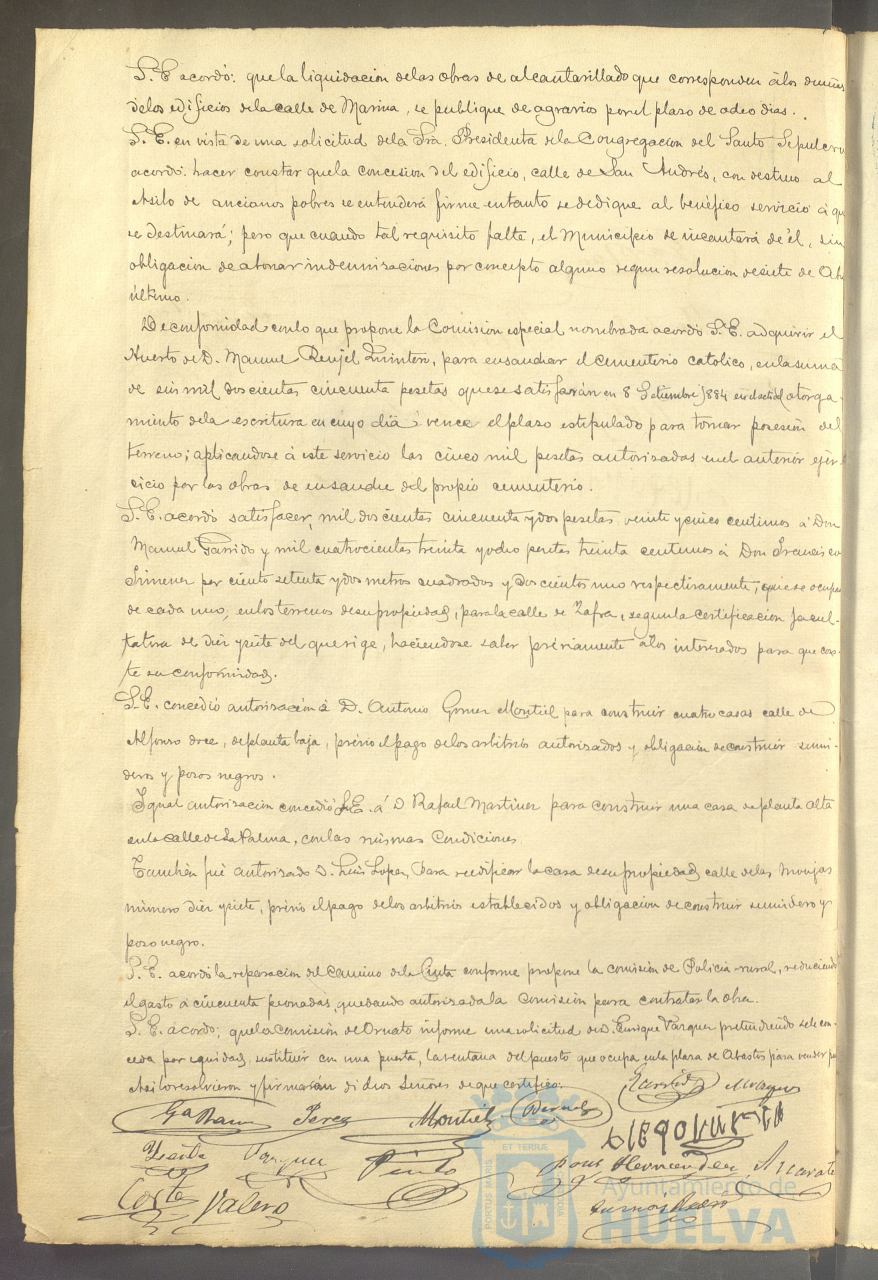 S. E. acordó: que la liquidacion delas obras de alcantarillado que corresponden álos dueños
delos edificios dela calle de Marina, se publique de agravios por el plazo de ocho dias.
S. E. en vista de una solicitud dela Sra. Presidenta dela Congregacion del Santo Sepulcro
acordó: hacer constar quela concesion del edificio, calle de San Andrés, con destino al
Asilo de ancianos pobres se entenderá firme entanto se dedique al benéfico servicio á que
se destinará; pero que cuando tal requisito falte, el Municipio se incautará de él, sin
obligacion de abonar indemnizaciones por concepto alguno segun resolucion desiete de Abril
último.
De conformidad conlo que propone la Comision especial nombrada acordó S. E. adquirir el
Huerto de D. Manuel Renjel Quintero, para ensanchar el cementerio catolico, enlasuma
de seis mil doscientas cincuenta pesetas quese satisfarán en 8 Setiembre 1884 otorga-
miento dela escritura en cuyo dia vence el plazo estipulado para tomar posesión del
terreno; aplicandose á este servicio las cinco mil pesetas autorizadas enel anterior ejer-
cicio por las obras de ensanche del propio cementerio.
S. E. acordó satisfacer, mil doscientas cincuenta ydos pesetas, veinte ycinco centimos á Don
Manuel Garrido y mil cuatrocientas treinta yocho pesetas treinta centimos á Don Francisco
Jimenez por ciento setenta ydos metros cuadrados y doscientos uno respectivamente, quese ocupan
de cada uno, enlos terrenos desupropiedad, parala calle de Zafra, segunla certificacion facul-
tativa de diez ysiete del que rige, haciendose saber préviamente alos interesados para que cons-
te su conformidad.
S. E. concedió autorizacion á D. Antonio Gomez Montiel para construir cuatro casas calle de
Alfonso doce, deplanta baja, prévio elpago delos arbitrios autorizados y obligación deconstruir sumi-
deros y pozos negros.
Igual autorizacion concedió S. E. á D Rafael Martinez para construir una casa deplanta alta
enla calle de La Palma, conlas mismas Condiciones
Tambien fué autorizado D. Luis Lopez, Para reedificar la casa desupropiedad calle delas Monjas
número diez ysiete, prévio elpago delos arbitrios establecidos y obligacion deconstruir sumidero y
pozo negro.
S. E. acordó la reparacion del Camino dela Cinta conforme propone la comisión de Policia rural, reduciendo
elgasto á cincuenta peonadas, quedando autorizada la Comisión para contratar la obra.
S. E. acordó; quela comisión de Ornato informe una solicitud de D. Enrique Vazquez pretendiendo sele con-
ceda por equidad, sustituir con una puerta, la ventana del puesto que ocupa enla plaza de Abastos para vender
Asi lo resolvieron y firmarán dichos Señores de que certifico:
Garrido
Perez Montiel
Vazquez Pinto Hernandez Azcarate
Cortes Valero
Ayuntamiento de
HUELVA